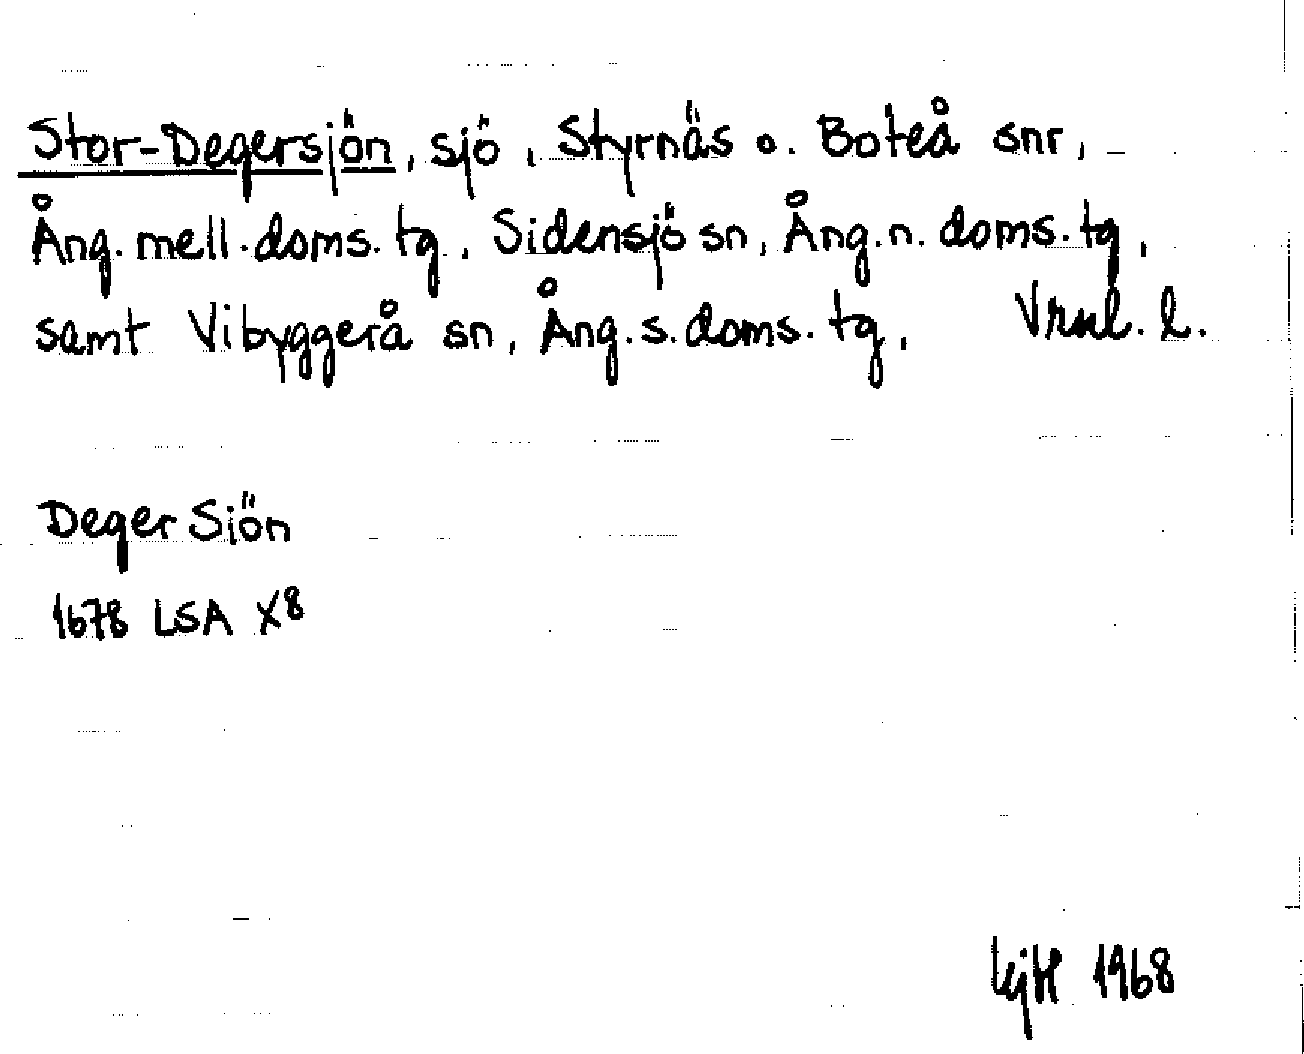 Stor-Degersjön, sjö, Styrnäs o. Boteå snr,
Ång. mell. doms. tg, Sidensjö sn, Ång. n. doms. tg,
samt Vibyggerå sn, Ång. s. doms. tg, Vrnl. l.
Deger Siön
1678 LSA X8
1968